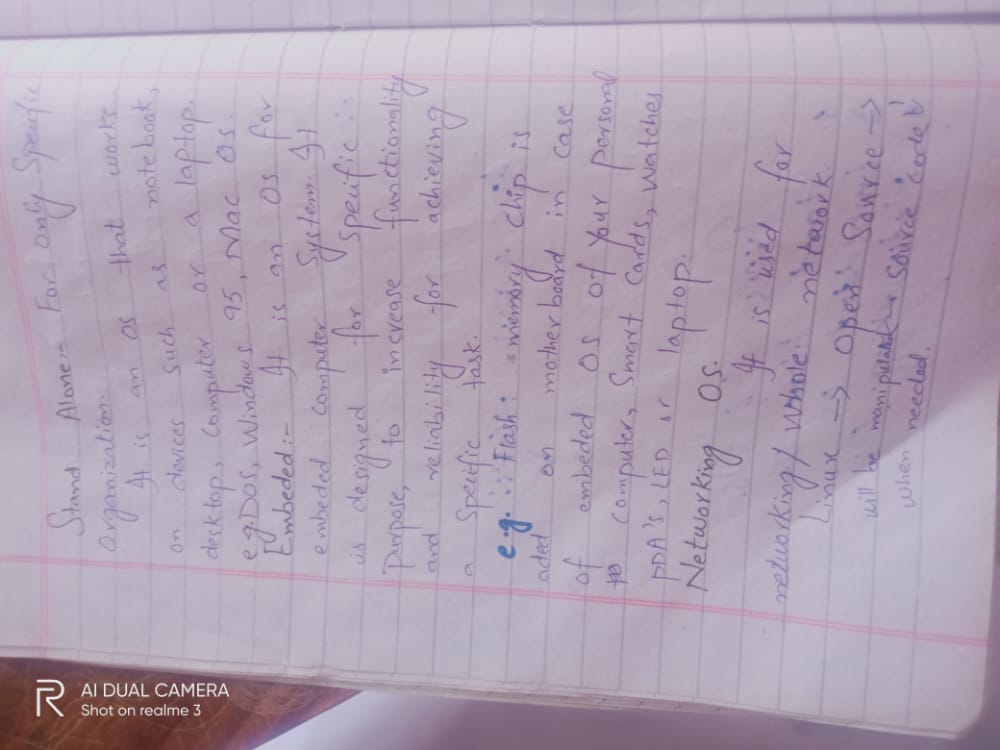 Stand Alone:- For only Specific
Organization.
It is an OS that works
on devices such as notebook,
desktop, computer or a laptop.
e.g. DOS, Windows 95, Mac OS.
Embeded:- It is an OS for
embeded computer System. It
is designed for specific
Purpose, to increase functionality
and reliability for achieving
a specific task.
e.g. Flash memory chip is
aded on motherboard in case
of embeded OS of your personal
computer, Smart Cards, Watches
PDA's, LED or laptop.
Networking OS.
It is used for
networking/whole network.
Linux → open Source →
will be Source Code
when needed.
AI DUAL CAMERA
Shot on realme 3